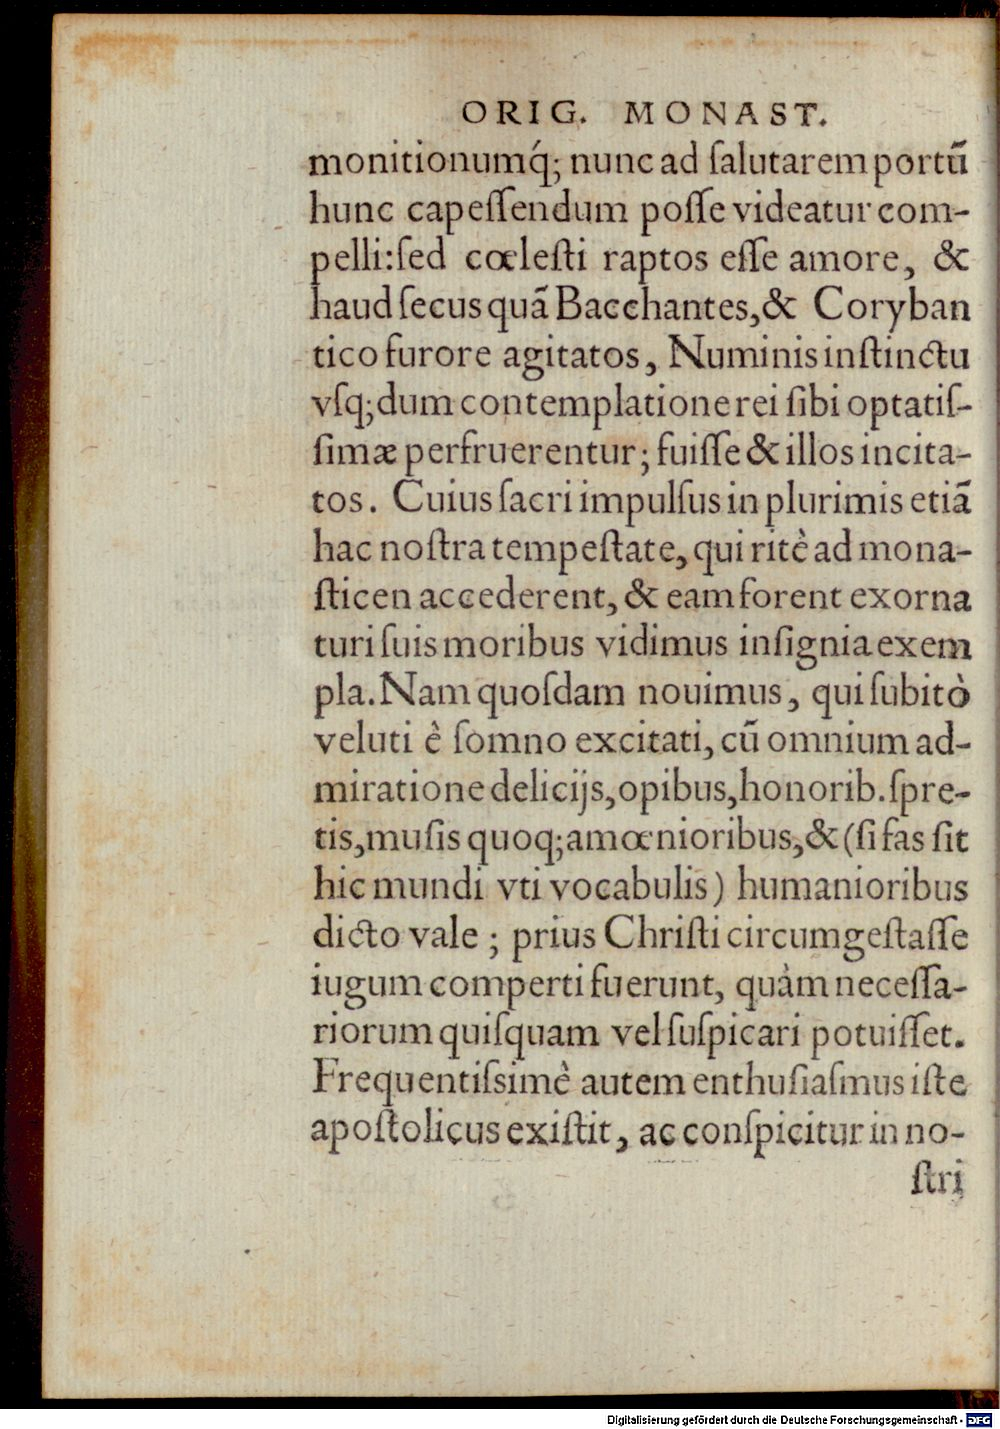 ORIG. MONAST.
monitionumq́; nunc ad ſalutarem portũ
hunc capeſſendum poſſe videatur com-
pelli: ſed cœleſti raptos eſſe amore, &
haud ſecus quã Bacchantes, & Coryban
tico furore agitatos, Numinis inſtinctu
vſq; dum contemplatione rei ſibi optatiſ-
ſimæ perfruerentur; fuiſſe & illos incita-
tos. Cuius ſacri impulſus in plurimis etiã
hac noſtra tempeſtate, qui ritè ad mona-
ſticen accederent, & eam forent exorna
turi ſuis moribus vidimus inſignia exem
pla. Nam quoſdam nouimus, qui ſubitò
veluti è ſomno excitati, cũ omnium ad-
miratione delicijs, opibus, honorib. ſpre-
tis, muſis quoq; amœnioribus, & (ſi fas ſit
hic mundi vti vocabulis) humanioribus
dicto vale; prius Chriſti circumgeſtaſſe
iugum comperti fuerunt, quàm neceſſa-
riorum quiſquam vel ſuſpicari potuiſſet.
Frequentiſsimè autem enthuſiaſmus iſte
apoſtolicus exiſtit, ac conſpicitur in no-
ſtri
Digitalisierung gefördert durch die Deutsche Forschungsgemeinschaft - DFG